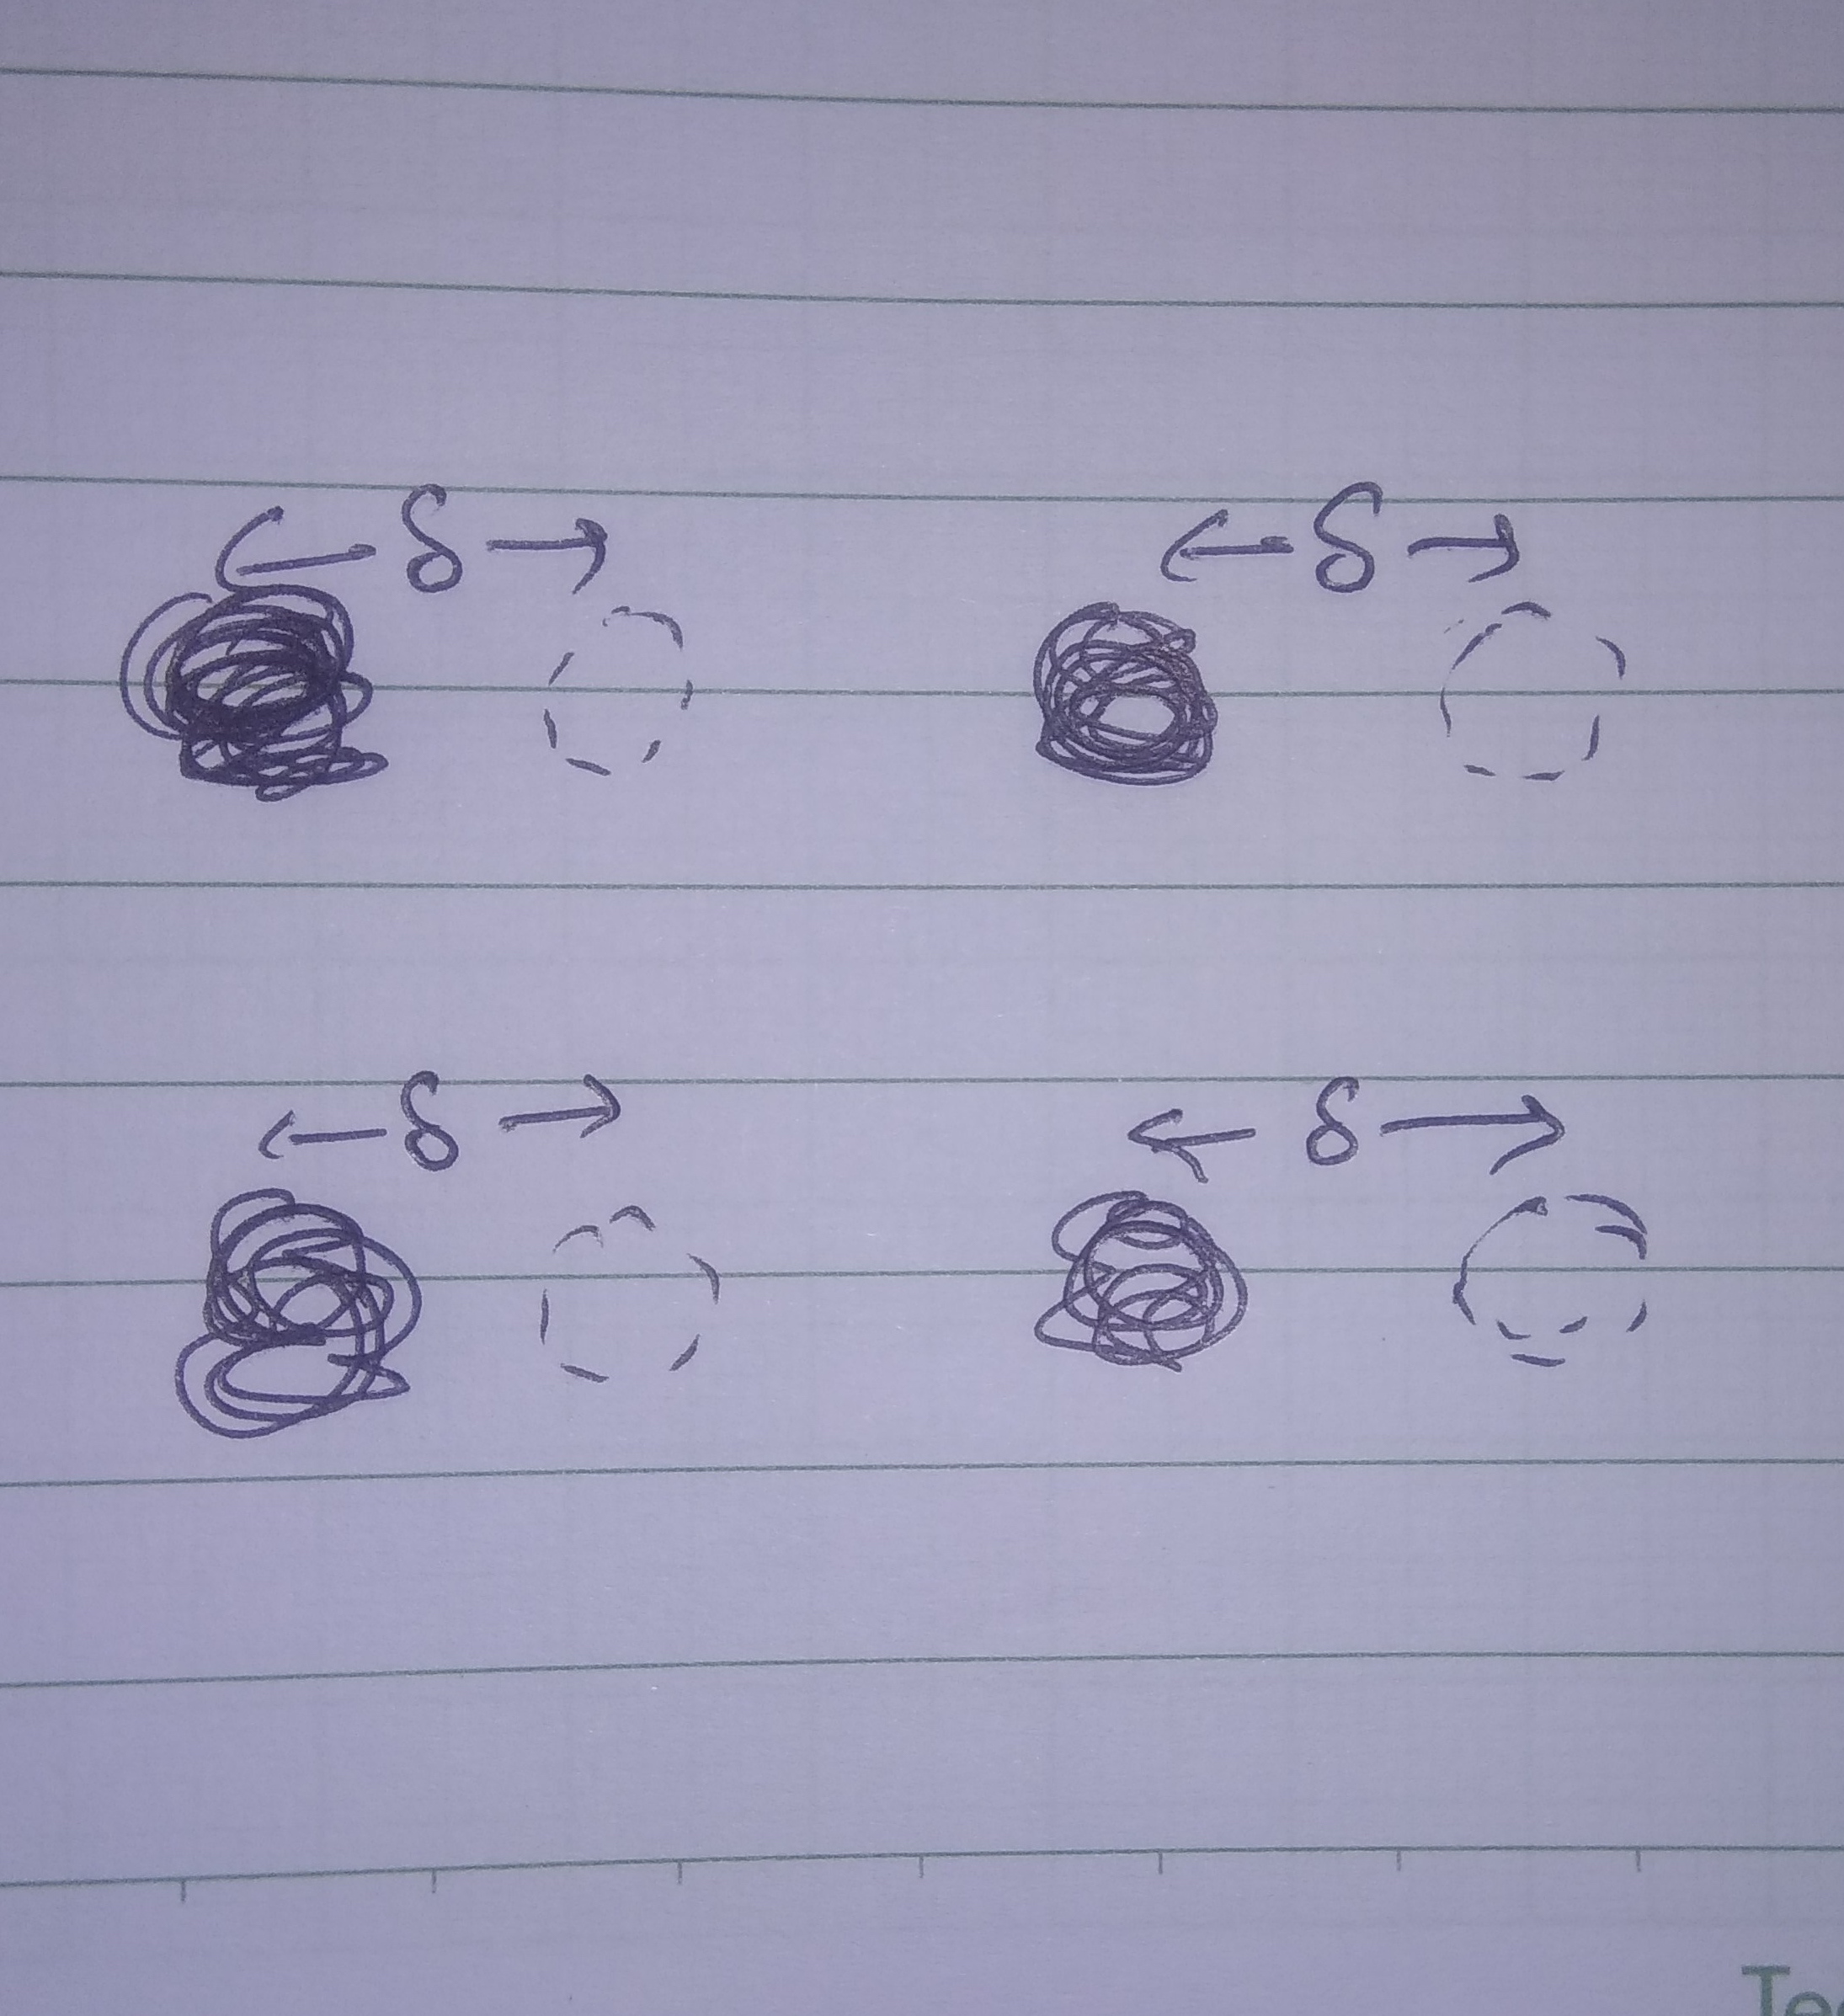 ←δ→ ←δ→
←δ→ ←δ→
Te